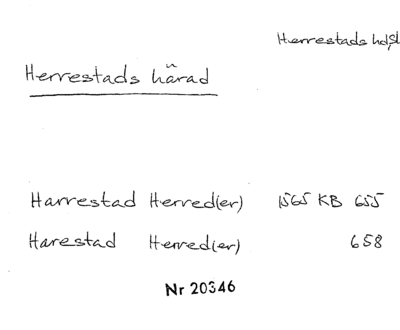 Herrestads hd, Sk
Herrestads härad
Harrestad Herred(er) 1565 KB 655
Harestad Herred(er) 658
Nr 20346